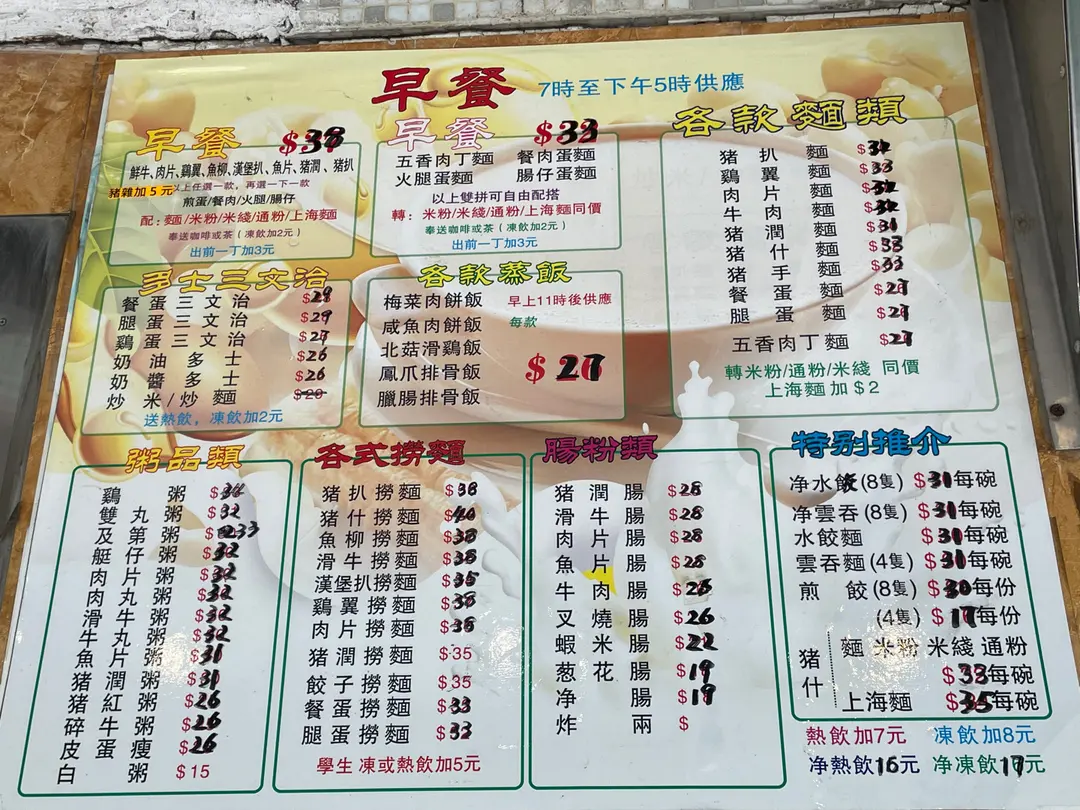 早餐 7時至下午5時供應
早餐 $38
鮮牛、肉片、鷄翼、魚柳、漢堡扒、魚片、猪潤、猪扒
猪雜加 5 元 以上任選一款，再選一下一款
煎蛋/餐肉/火腿/腸仔
配：麵/米粉/米綫/通粉/上海麵
奉送咖啡或茶（凍飲加2元）
出前一丁加3元
早餐 $33
五香肉丁麵 餐肉蛋麵
火腿蛋麵 腸仔蛋麵
以上雙拼可自由配搭
轉：米粉/米綫/通粉/上海麵同價
奉送咖啡或茶（凍飲加2元）
出前一丁加3元
各款麵類
猪扒麵
鷄翼麵 $33
肉片麵
牛肉麵
猪潤麵 $31
猪什麵 $38
猪手麵 $33
餐蛋麵
腿蛋麵
五香肉丁麵
轉米粉/通粉/米綫 同價
上海麵加 $2
多士三文治
餐蛋三文治 $29
腿蛋三文治 $29
鷄蛋三文治
奶油多士 $26
奶醬多士 $26
炒米/炒麵 $20
送熱飲，凍飲加2元
各款蒸飯
梅菜肉餅飯 早上11時後供應
咸魚肉餅飯 每款
北菇滑鷄飯
鳳爪排骨飯 $27
臘腸排骨飯
粥品類
鷄粥
雙丸粥 $32
及第粥 33
艇仔粥 $32
肉片粥 $32
肉丸粥 $32
滑牛粥 $32
牛丸粥 $32
魚片粥 $31
猪潤粥 $31
猪紅粥 $26
碎牛粥 $26
皮蛋瘦 $26
白粥 $15
各式撈麵
猪扒撈麵 $38
猪什撈麵 $40
魚柳撈麵 $38
滑牛撈麵 $38
漢堡扒撈麵
鷄翼撈麵 $38
肉片撈麵 $38
猪潤撈麵 $35
餃子撈麵 $35
餐蛋撈麵 $33
腿蛋撈麵 $33
學生 凍或熱飲加5元
腸粉類
猪潤腸 $28
滑牛腸 $28
肉片腸 $28
魚片腸 $28
牛肉腸
叉燒腸 $26
蝦米腸 $22
葱花腸 $19
净腸 $19
炸兩 $
特别推介
净水餃(8隻) $31每碗
净雲吞(8隻) $31每碗
水餃麵 $31每碗
雲吞麵(4隻) $31每碗
煎餃(8隻) $30每份
(4隻) $17每份
猪什 麵 米粉 米綫 通粉
$33每碗
上海麵 $35每碗
熱飲加7元 凍飲加8元
净熱飲16元 净凍飲17元